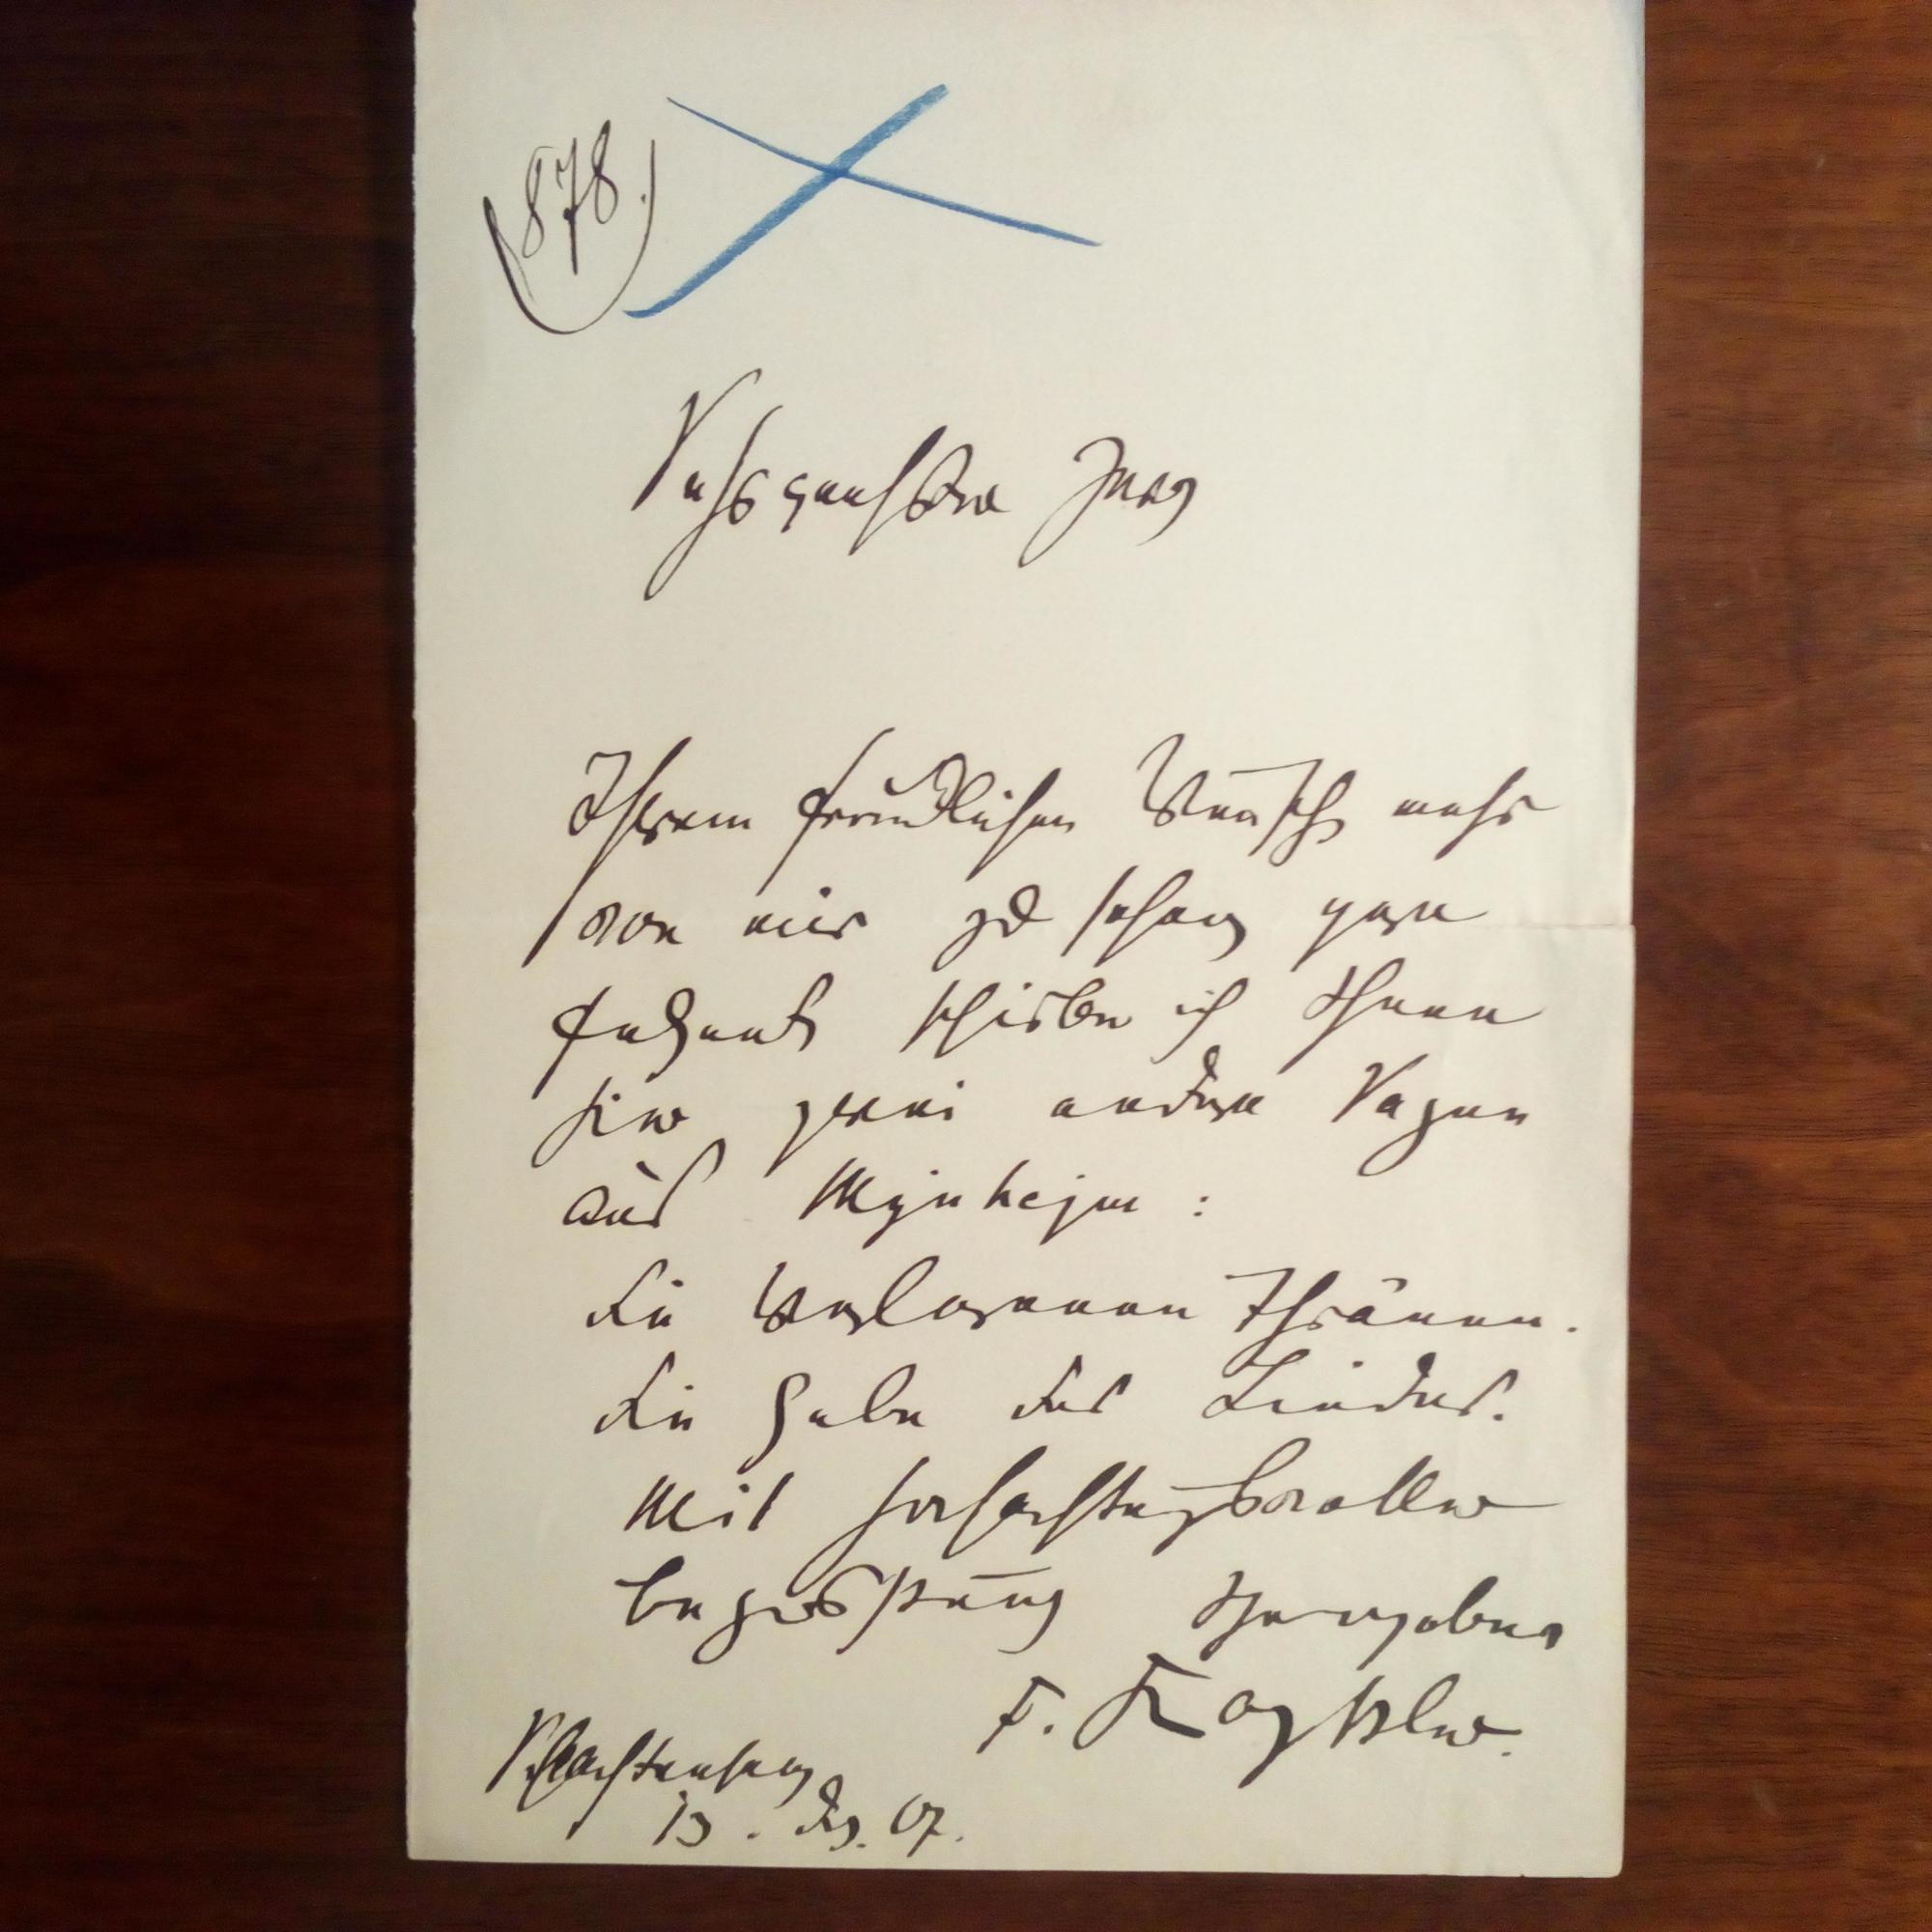 878.
Sehr geehrter Herr
Ihrem freundlichen Wunsch, mehr
von mir zu sehen, gern
folgend, schicke ich Ihnen
hier zwei andere Sagen
aus Mjnhejm:
die Verlorenen Thränen.
die Gabe des Leides.
Mit hochachtungsvoller
Begrüssung Ihr ergebener
F. Kayssler.
Schlachtensee
13. Dez. 07.